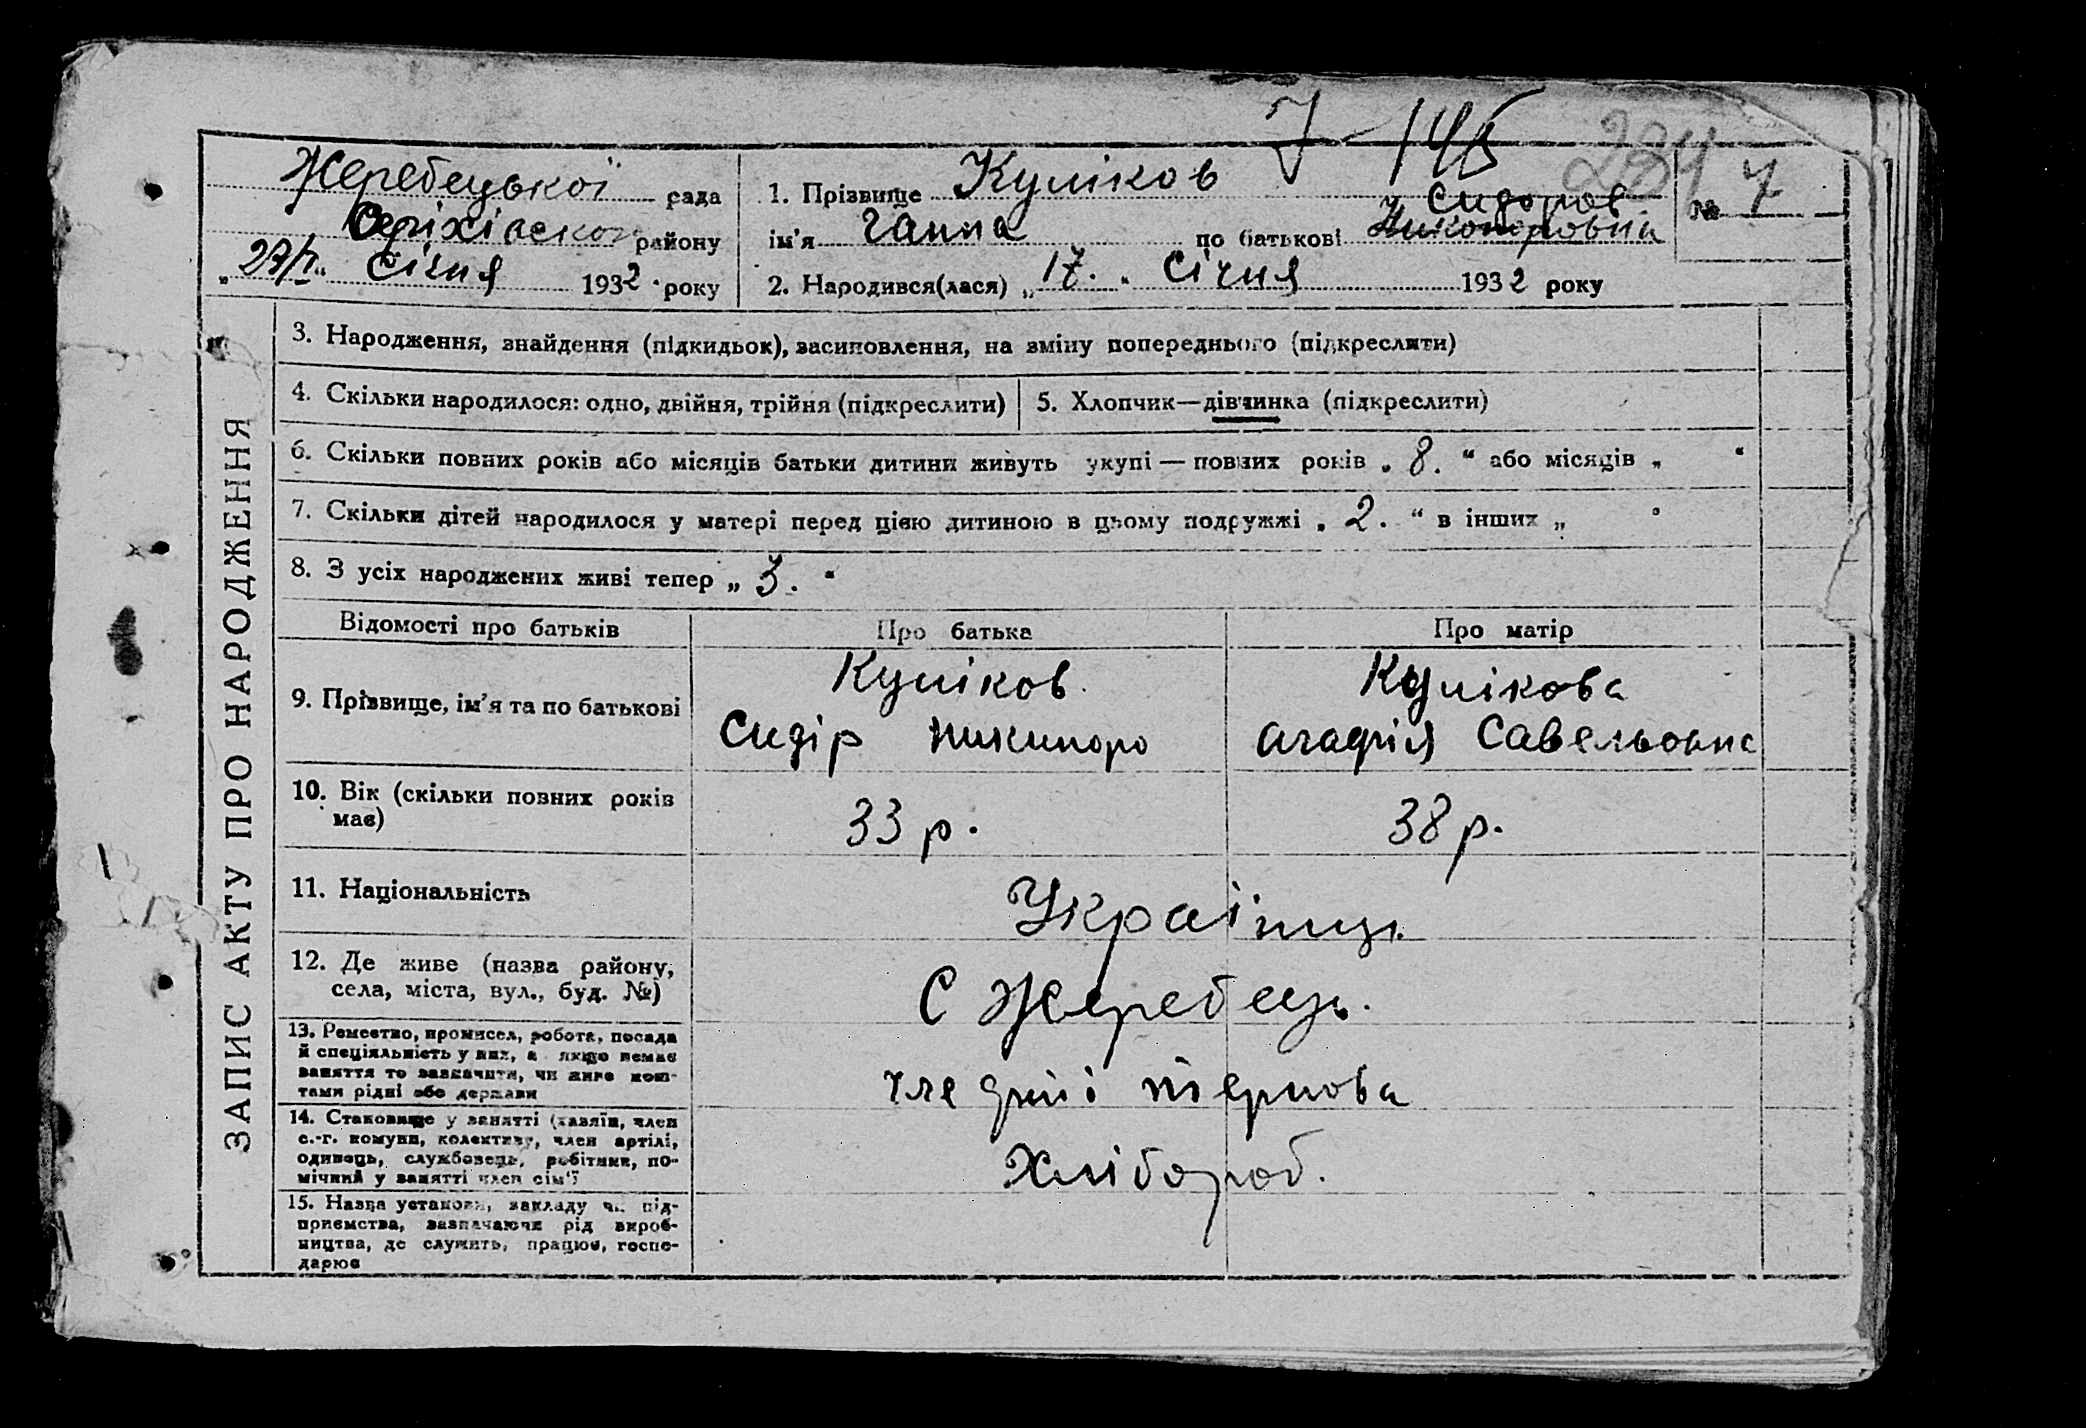 7-146
234
Жеребецької рада
Оріхівского району
„27/I“ Січня 1932 року
1. Прізвище Куліков
ім'я Ганна по батькові Сидоров Никоноровна
2. Народився(лася) „17.“ Січня 1932 року
№ 7
ЗАПИС АКТУ ПРО НАРОДЖЕННЯ
3. Народження, знайдення (підкидьок), засиновлення, на зміну попереднього (підкреслити)
4. Скільки народилося: одно, двійня, трійня (підкреслити)
5. Хлопчик—дівчинка (підкреслити)
6. Скільки повних років або місяців батьки дитини живуть укупі — повних років „8.“ або місяців „ “
7. Скільки дітей народилося у матері перед цією дитиною в цьому подружжі „2.“ в інших „ “
8. З усіх народжених живі тепер „3.“
Відомості про батьків
Про батька
Про матір
9. Прізвище, ім'я та по батькові
Куліков
Сидір Никипоро
Кулікова
Агафія Савельовна
10. Вік (скільки повних років
має)
33 р.
38 р.
11. Національність
Українці.
12. Де живе (назва району,
села, міста, вул., буд. №)
С Жеребець.
13. Ремество, промисел, робота, посада
й спеціяльність у них, а якщо немає
заняття то зазначити, чи живе кош-
тами рідні або держави
14. Становище у занятті (хазяїн, член
с.-г. комуни, колективу, член артілі,
одинець, службовець, робітник, по-
мічний у занятті член сім'ї
Хлібороб.
15. Назва установи, закладу чи під-
приємства, зазначаючи рід вироб-
ництва, де служить, працює, госпо-
дарює